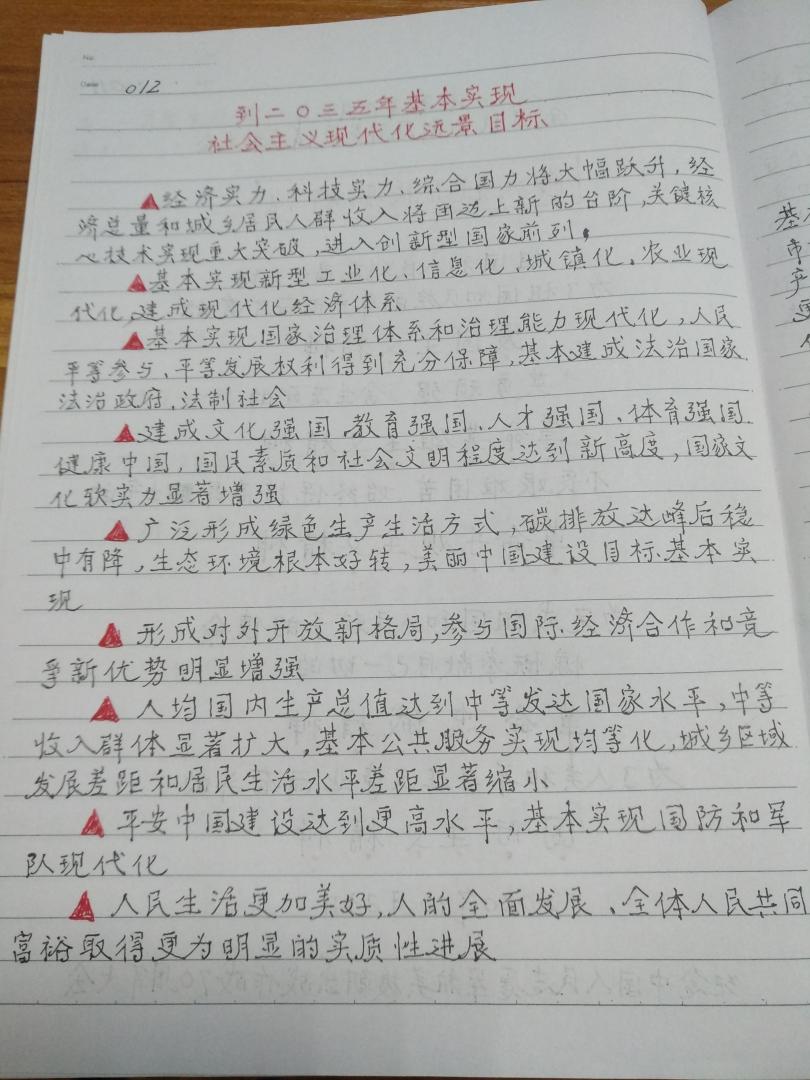 No.
Date 012
到二〇三五年基本实现
社会主义现代化远景目标
▲经济实力、科技实力、综合国力将大幅跃升,经
济总量和城乡居民人群收入将再迈上新的台阶,关键核
心技术实现重大突破,进入创新型国家前列。
▲基本实现新型工业化、信息化、城镇化、农业现
代化,建成现代化经济体系
▲基本实现国家治理体系和治理能力现代化,人民
平等参与、平等发展权利得到充分保障,基本建成法治国家、
法治政府、法制社会
▲建成文化强国、教育强国、人才强国、体育强国、
健康中国,国民素质和社会文明程度达到新高度,国家文
化软实力显著增强
▲广泛形成绿色生产生活方式,碳排放达峰后稳
中有降,生态环境根本好转,美丽中国建设目标基本实
现
▲形成对外开放新格局,参与国际经济合作和竞
争新优势明显增强
▲人均国内生产总值达到中等发达国家水平,中等
收入群体显著扩大,基本公共服务实现均等化,城乡区域
发展差距和居民生活水平差距显著缩小
▲平安中国建设达到更高水平,基本实现国防和军
队现代化
▲人民生活更加美好,人的全面发展、全体人民共同
富裕取得更为明显的实质性进展